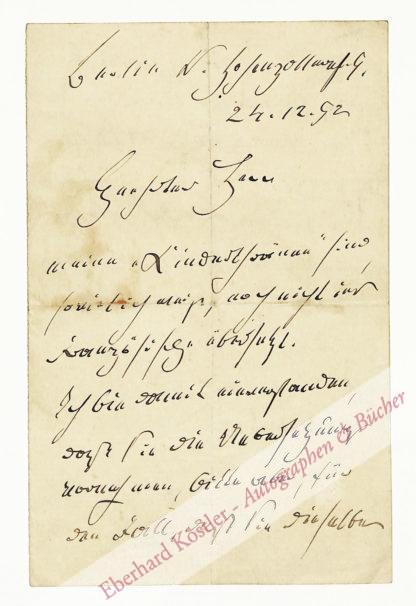 Berlin W. Hohenzollernstr. 9.
24.12.92
Geehrter Herr
meine „Kinderthränen“ sind,
soviel ich weiß, noch nicht ins
Französische übersetzt.
Ich bin damit einverstanden,
daß Sie die Uebersetzung
vornehmen, bitte, für
den Fall, daß Sie dieselbe
Eberhard Köstler - Autographen & Bücher